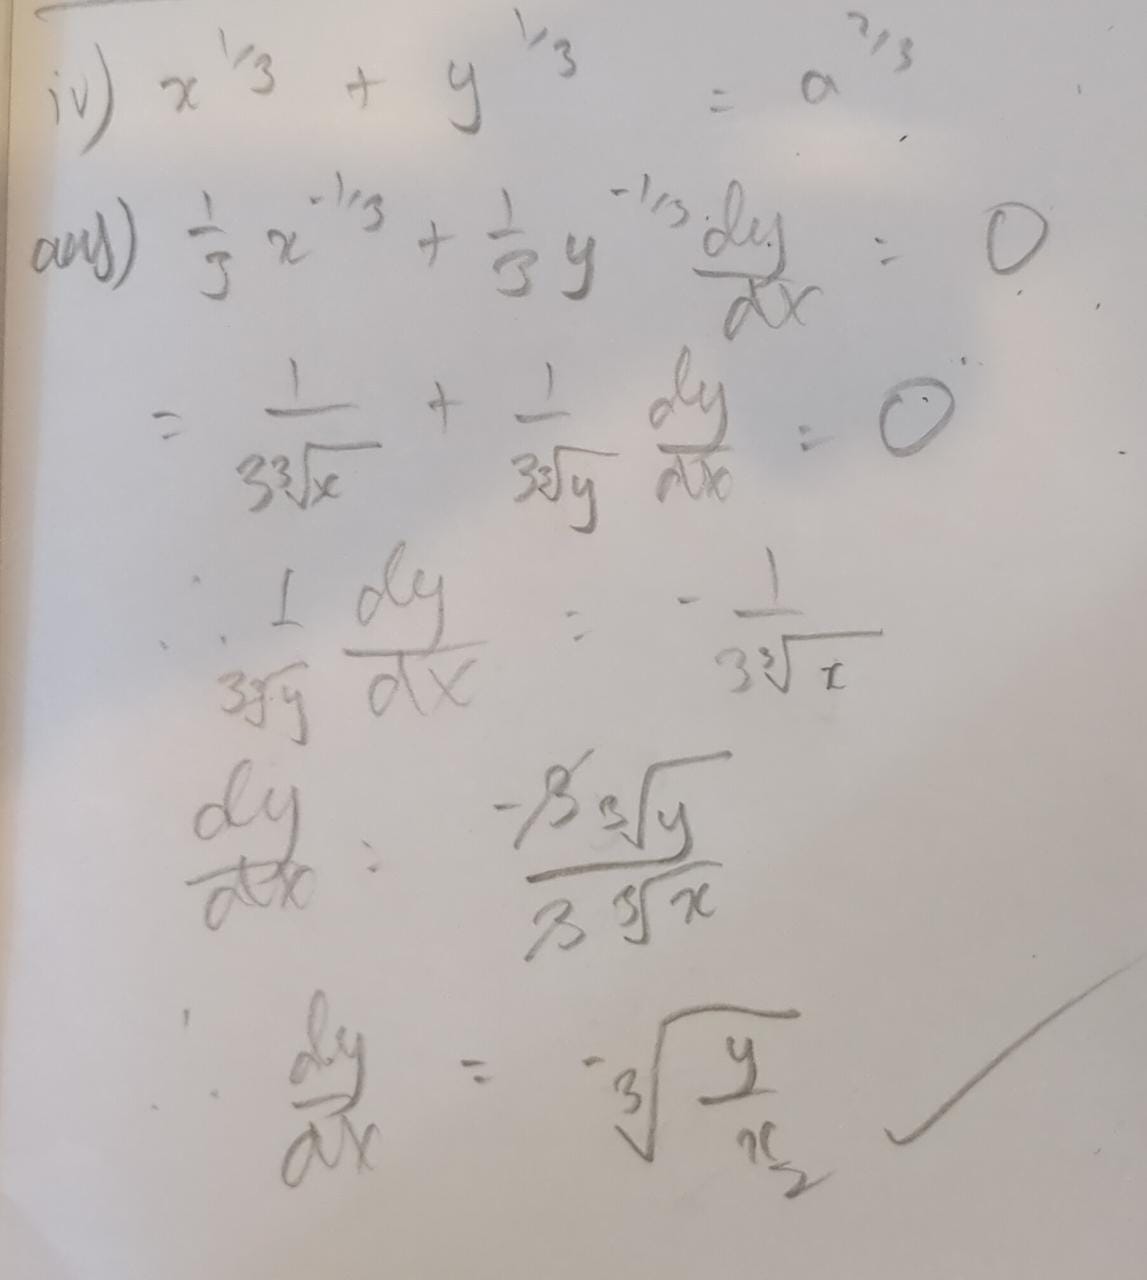 iv) x^1/3 + y^1/3 = a^2/3
ans) 1/3 x^-1/3 + 1/3 y^-1/3 dy/dx = 0
= 1/(3∛x) + 1/(3∛y) dy/dx = 0
∴ 1/(3∛y) dy/dx = - 1/(3∛x)
dy/dx = -3∛y/(3∛x)
∴ dy/dx = -∛(y/x)